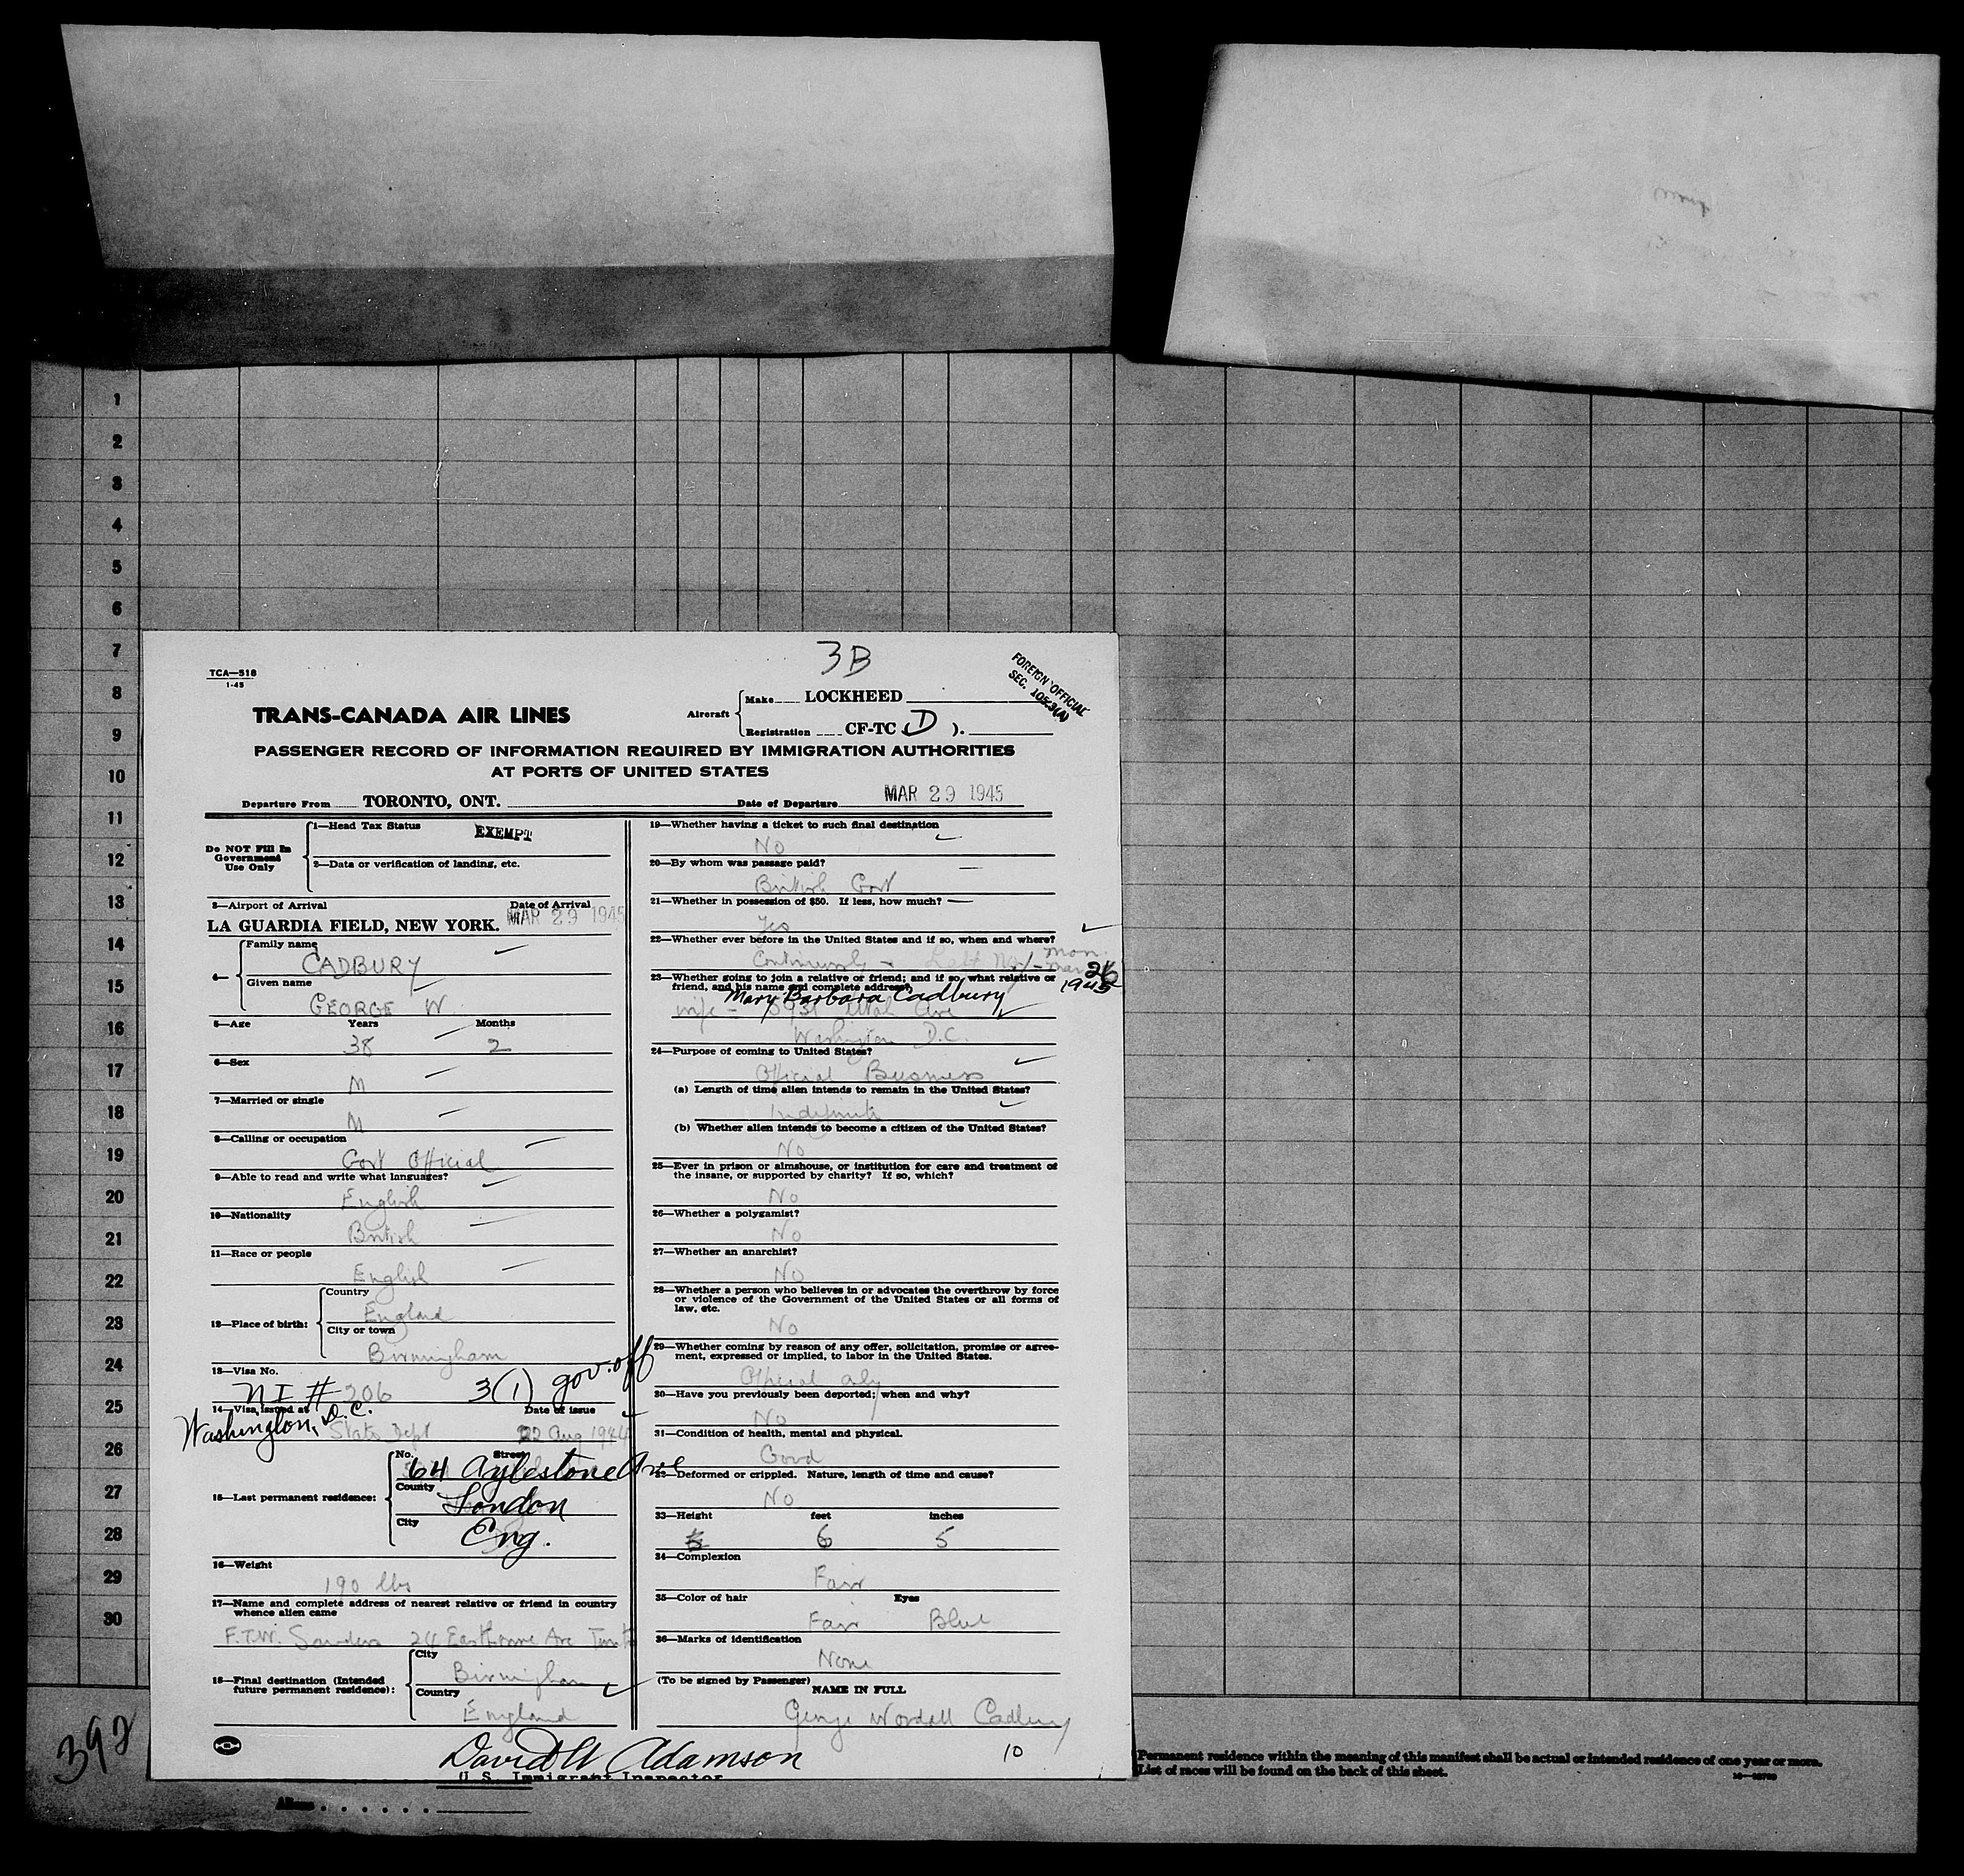 1
2
3
4
5
6
7
8
9
10
11
12
13
14
15
16
17
18
19
20
21
22
23
24
25
26
27
28
29
30
392
TCA—518
1-45
3B
FOREIGN OFFICIAL
SEC. 105.3(A)
TRANS-CANADA AIR LINES
Aircraft
Make LOCKHEED
Registration CF-TC (D).
PASSENGER RECORD OF INFORMATION REQUIRED BY IMMIGRATION AUTHORITIES
AT PORTS OF UNITED STATES
Departure From TORONTO, ONT. Date of Departure MAR 29 1945
Do NOT Fill In
Government
Use Only
1—Head Tax Status EXEMPT
2—Data or verification of landing, etc.
3—Airport of Arrival Date of Arrival
LA GUARDIA FIELD, NEW YORK. MAR 29 1945
4— Family name
CADBURY
Given name
GEORGE W
5—Age Years Months
38 2
6—Sex
M
7—Married or single
M
8—Calling or occupation
Govt Official
9—Able to read and write what languages?
English
10—Nationality
British
11—Race or people
English
12—Place of birth: Country
England
City or town
Birmingham
13—Visa No.
NI # 206 3(1) gov. off
14—Visa issued at Date of issue
Washington, D.C. State Dept 22 Aug 1944
15—Last permanent residence: No. Street
64 Aylestone Ave
County
London
City
Eng.
16—Weight
190 lbs
17—Name and complete address of nearest relative or friend in country
whence alien came
F.T.W. Saunders 24 Ave
18—Final destination (Intended
future permanent residence):
City
Birmingham
Country
England
19—Whether having a ticket to such final destination
No
20—By whom was passage paid?
British Govt
21—Whether in possession of $50. If less, how much?
Yes
22—Whether ever before in the United States and if so, when and where?
Continuously - Left Mon. Mar 26 1945
23—Whether going to join a relative or friend; and if so, what relative or
friend, and his name and complete address?
Mary Barbara Cadbury
wife - 3931 Utah Ave
Washington D.C.
24—Purpose of coming to United States?
Official Business
(a) Length of time alien intends to remain in the United States?
Indefinite
(b) Whether alien intends to become a citizen of the United States?
No
25—Ever in prison or almshouse, or institution for care and treatment of
the insane, or supported by charity? If so, which?
No
26—Whether a polygamist?
No
27—Whether an anarchist?
No
28—Whether a person who believes in or advocates the overthrow by force
or violence of the Government of the United States or all forms of
law, etc.
No
29—Whether coming by reason of any offer, solicitation, promise or agree-
ment, expressed or implied, to labor in the United States.
Official only
30—Have you previously been deported; when and why?
No
31—Condition of health, mental and physical.
Good
32—Deformed or crippled. Nature, length of time and cause?
No
33—Height feet inches
6 5
34—Complexion
Fair
35—Color of hair Eyes
Fair Blue
36—Marks of identification
None
(To be signed by Passenger)
NAME IN FULL
George Wordall Cadbury
10
David W Adamson
U. S. Immigrant Inspector
Aliens
Permanent residence within the meaning of this manifest shall be actual or intended residence of one year or more.
List of races will be found on the back of this sheet.